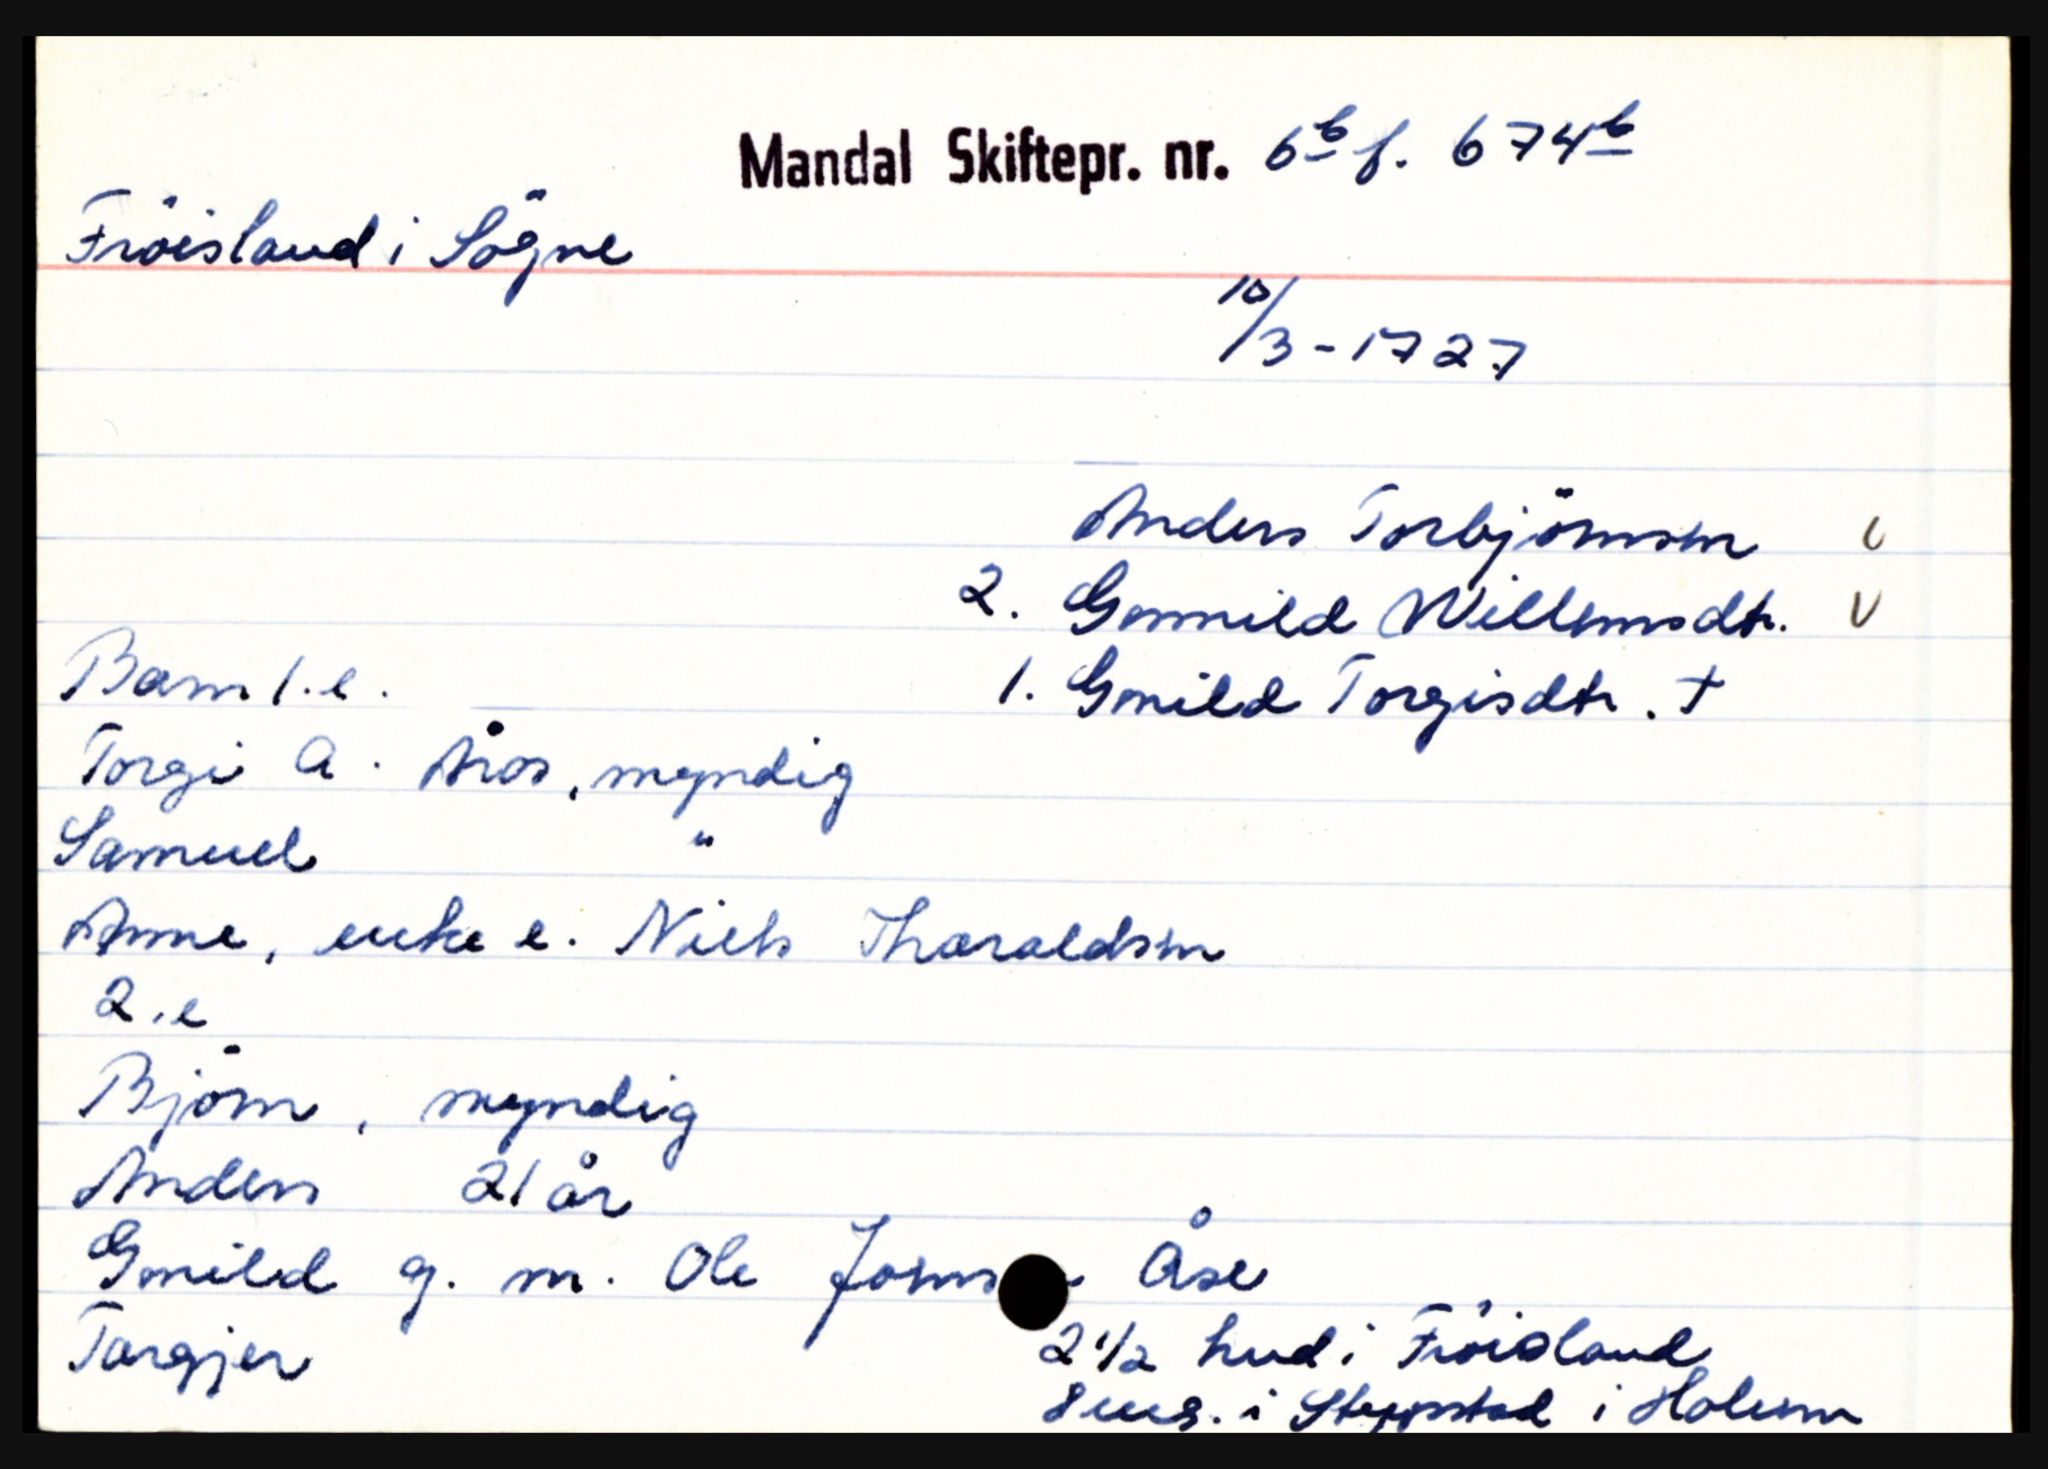 Mandal Skiftepr. nr. 6b f. 674b
Fröisland i Sögne
10/3 - 1727
Anders Torbjörnsen
2. Gunnild Willumsdtr.
Barn 1.e.
1. Gunild Torgisdtr. †
Torgi A. Åros, myndig
Samuel "
Anne, enke e. Niels Tharaldsen
2.e
Björn, myndig
Anders 21 år
Gunild g. m. Ole Åse
Targjer
2 1/2 hud i Fröisland
8 eng. i i Holum